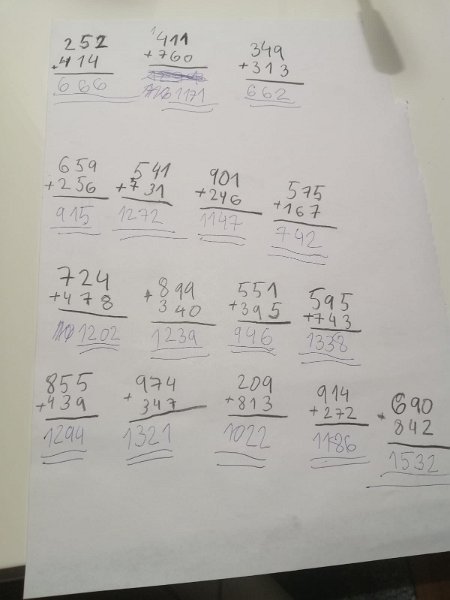 252 411 349
+414 +760 +313
666 1171 662
659 541 901 575
+256 +731 +246 +167
915 1272 1147 742
724 899 551 595
+478 +340 +395 +743
1202 1239 946 1338
855 974 209 914 690
+439 +347 +813 +272 +842
1294 1321 1022 1186 1532